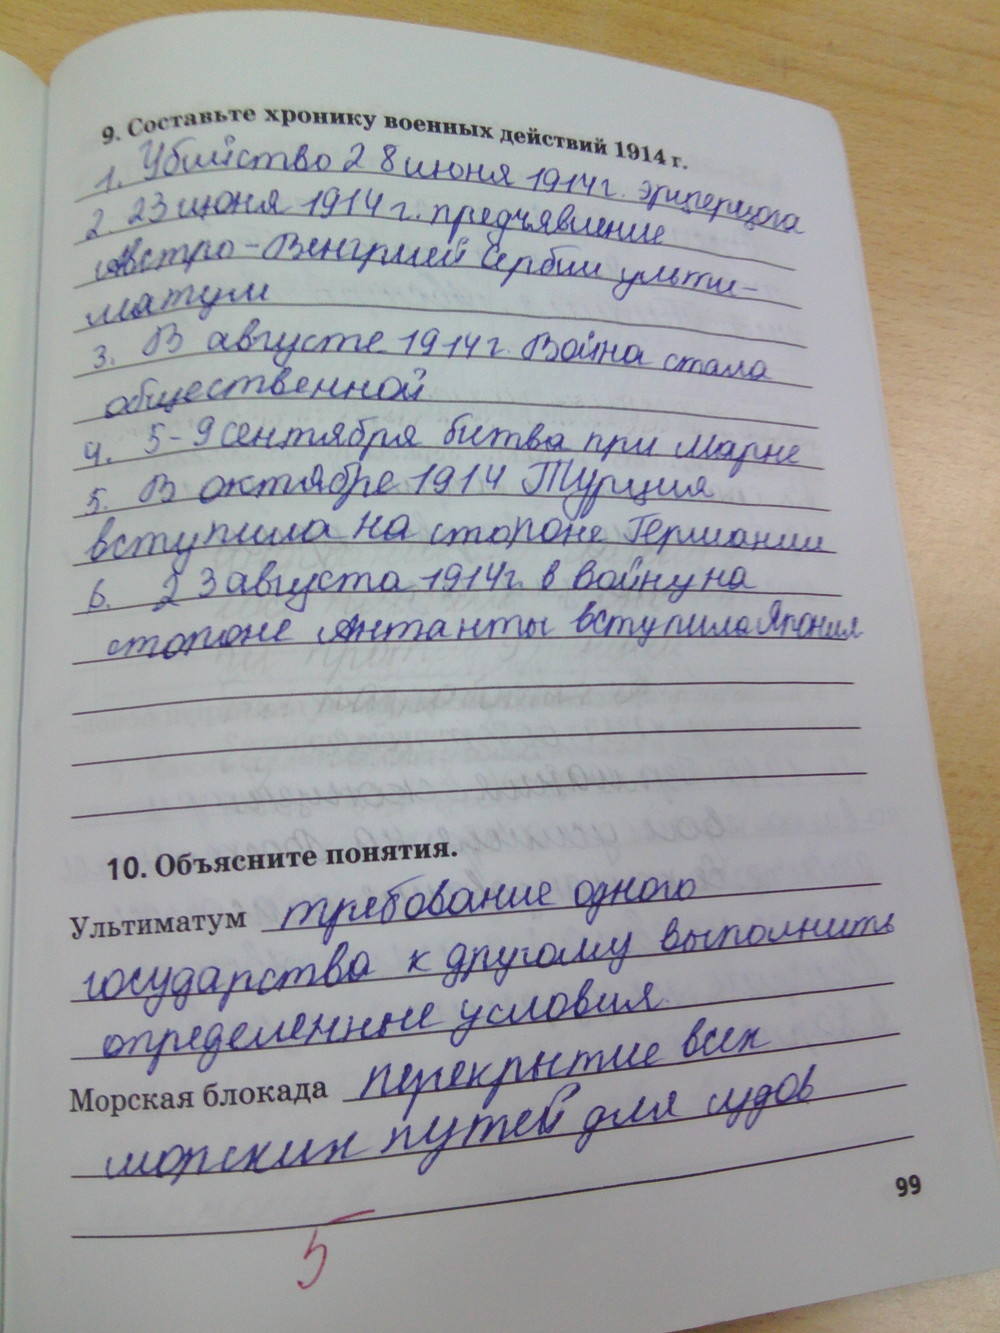 9. Составьте хронику военных действий 1914 г.
1. Убийство 28 июня 1914 г. эрцгерцога
2. 23 июня 1914 г. предъявление
Австро-Венгрией Сербии ульти-
матум
3. В августе 1914 г. Война стала
общественной
4. 5-9 сентября битва при Марне
5. В октябре 1914 Турция
вступила на стороне Германии
6. 23 августа 1914 г. в войну на
стороне Антанты вступила Япония
10. Объясните понятия.
Ультиматум требование одного
государства к другому выполнить
определенные условия.
Морская блокада перекрытие всех
морских путей для судов
99
5